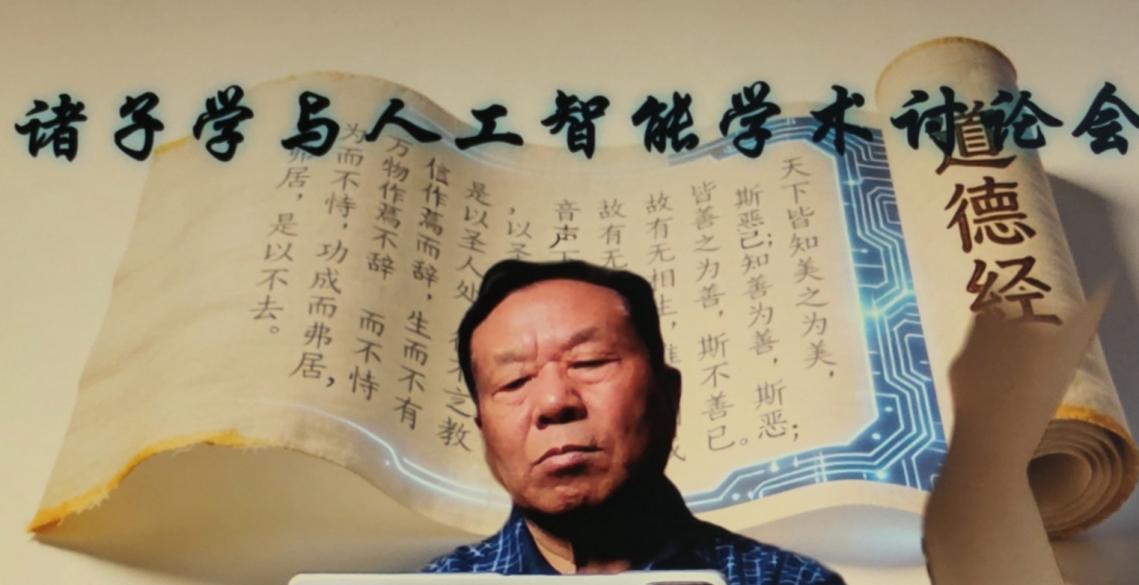 诸子学与人工智能学术讨论会
道德经
天下皆知美之为美，
斯恶已；知善为善，斯恶；
皆善之为善，斯不善已。
故有无相生，
故有无
音声
，以圣
是以圣人处 不之教
信作焉而辞，生而不有
万物作焉不辞 而不恃
为而不恃，功成而弗居，
弗居，是以不去。